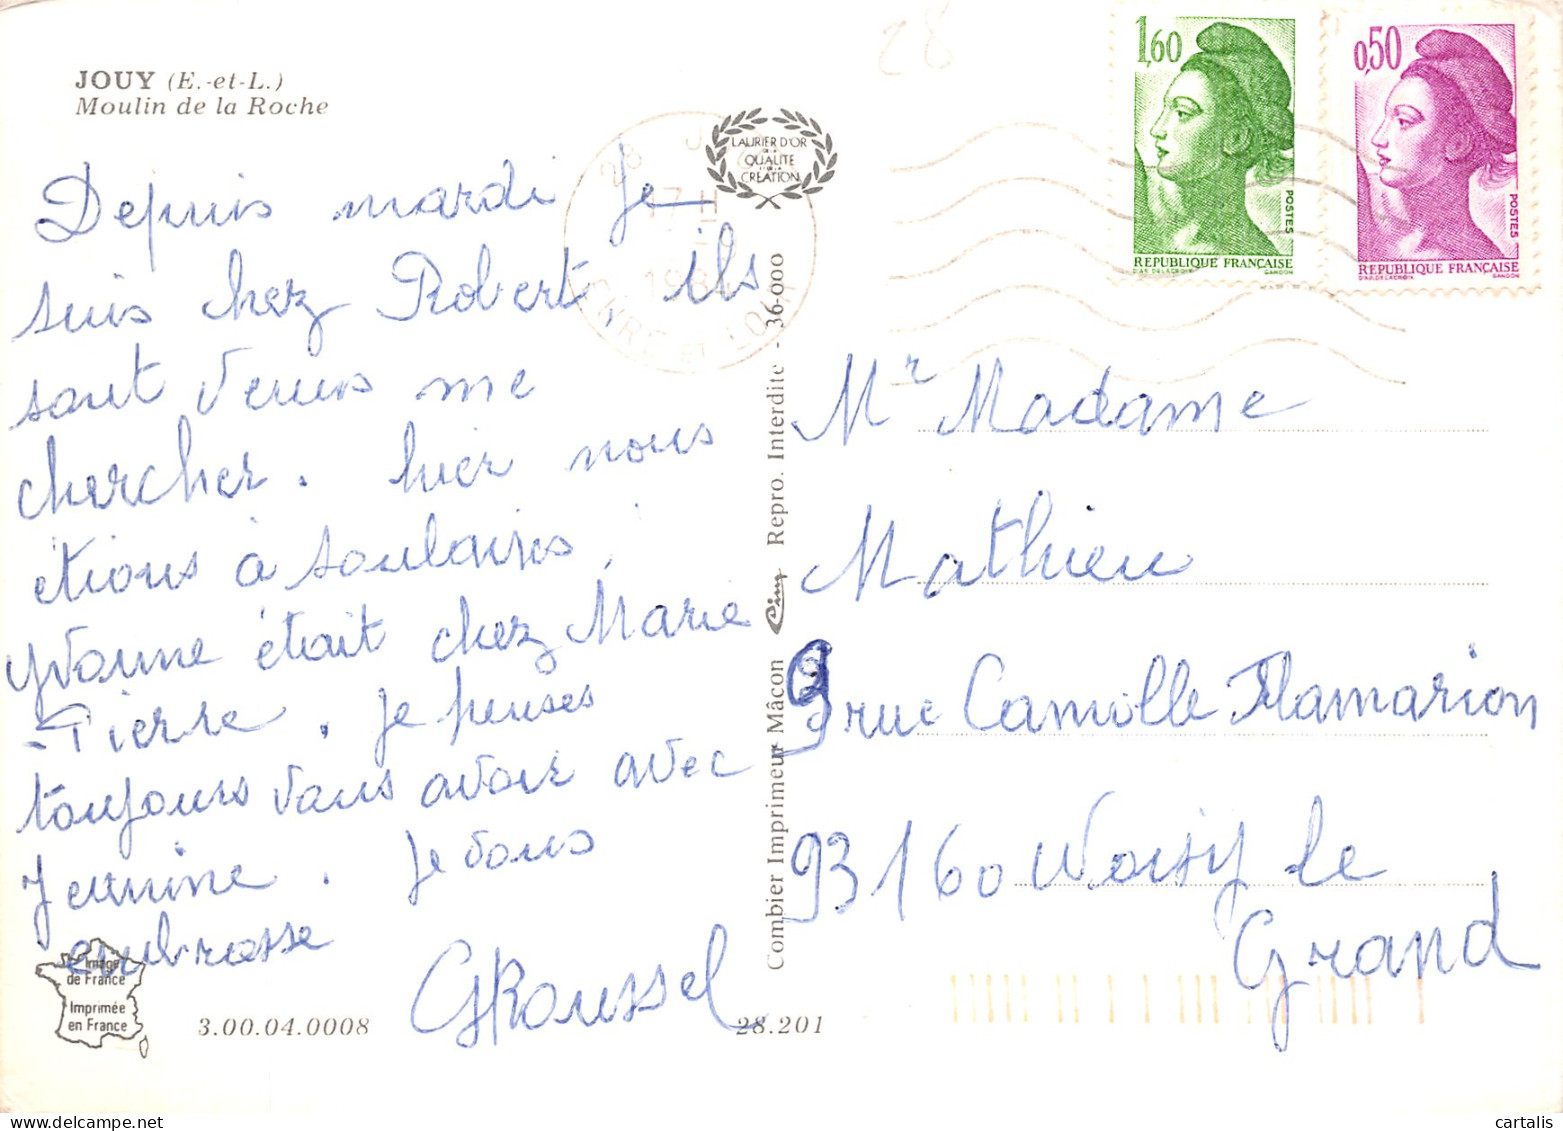 JOUY (E.-et-L.)
Moulin de la Roche
Depuis mardi je
suis chez Robert, ils
sont venus me
chercher. hier nous
étions à Soulaires,
Yvonne était chez Marie
-Pierre. je penses
toujours vous avoir avec
Jeannine. je vous
embrasse
GRoussel
Image
de France
Imprimée
en France
3.00.04.0008
28.201
LAURIER D'OR
DE LA
QUALITE
CREATION
Combier Imprimeur Mâcon Cim Repro. Interdite - 36-000
28
17 H
EURE ET LOIR
1,60
POSTES
REPUBLIQUE FRANÇAISE
D'AP. DELACROIX GANDON
0,50
POSTES
REPUBLIQUE FRANÇAISE
D'AP. DELACROIX GANDON
28
Mr Madame
Mathieu
9 rue Camille Flamarion
93160 Noisy le
Grand
cartalis